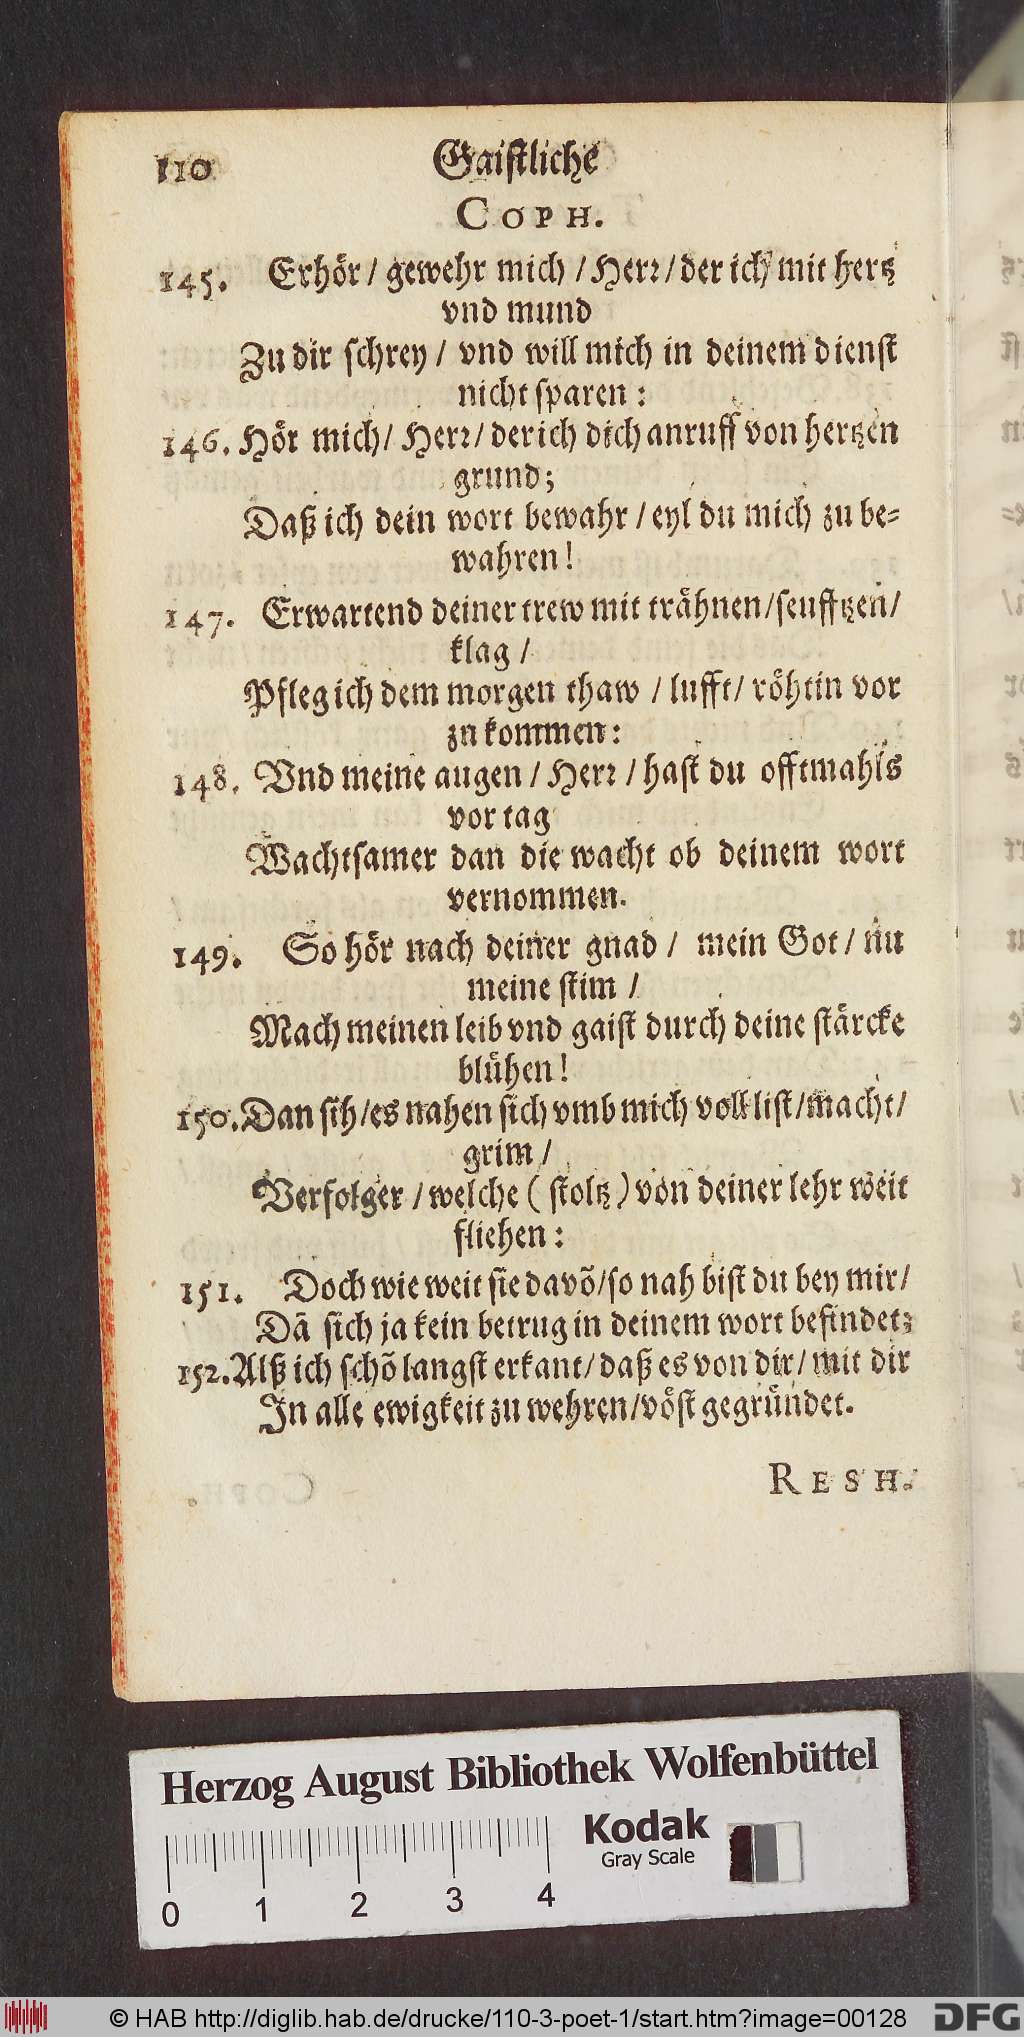 110 Gaistliche
COPH.
145. Erhör / gewehr mich / Herr / der ich mit hertz
vnd mund
Zu dir schrey / vnd will mich in deinem dienst
nicht sparen :
146. Hör mich / Herr / der ich dich anruff von hertzen
grund;
Daß ich dein wort bewahr / eyl du mich zu be=
wahren !
147. Erwartend deiner trew mit trähnen / seufftzen /
klag /
Pfleg ich dem morgen thaw / lufft / röhtin vor
zu kommen :
148. Vnd meine augen / Herr / hast du offtmahls
vor tag
Wachtsamer dan die wacht ob deinem wort
vernommen.
149. So hör nach deiner gnad / mein Got / nu
meine stim /
Mach meinen leib vnd gaist durch deine stärcke
blühen !
150. Dan sih / es nahen sich vmb mich voll list / macht /
grim /
Verfolger / welche ( stoltz ) von deiner lehr weit
fliehen :
151. Doch wie weit sie davõ / so nah bist du bey mir /
Dã sich ja kein betrug in deinem wort befindet;
152. Alß ich schõ langst erkant / daß es von dir / mit dir
In alle ewigkeit zu wehren / vöst gegründet.
RESH.
Herzog August Bibliothek Wolfenbüttel
Kodak
Gray Scale
0 1 2 3 4
© HAB http://diglib.hab.de/drucke/110-3-poet-1/start.htm?image=00128
DFG